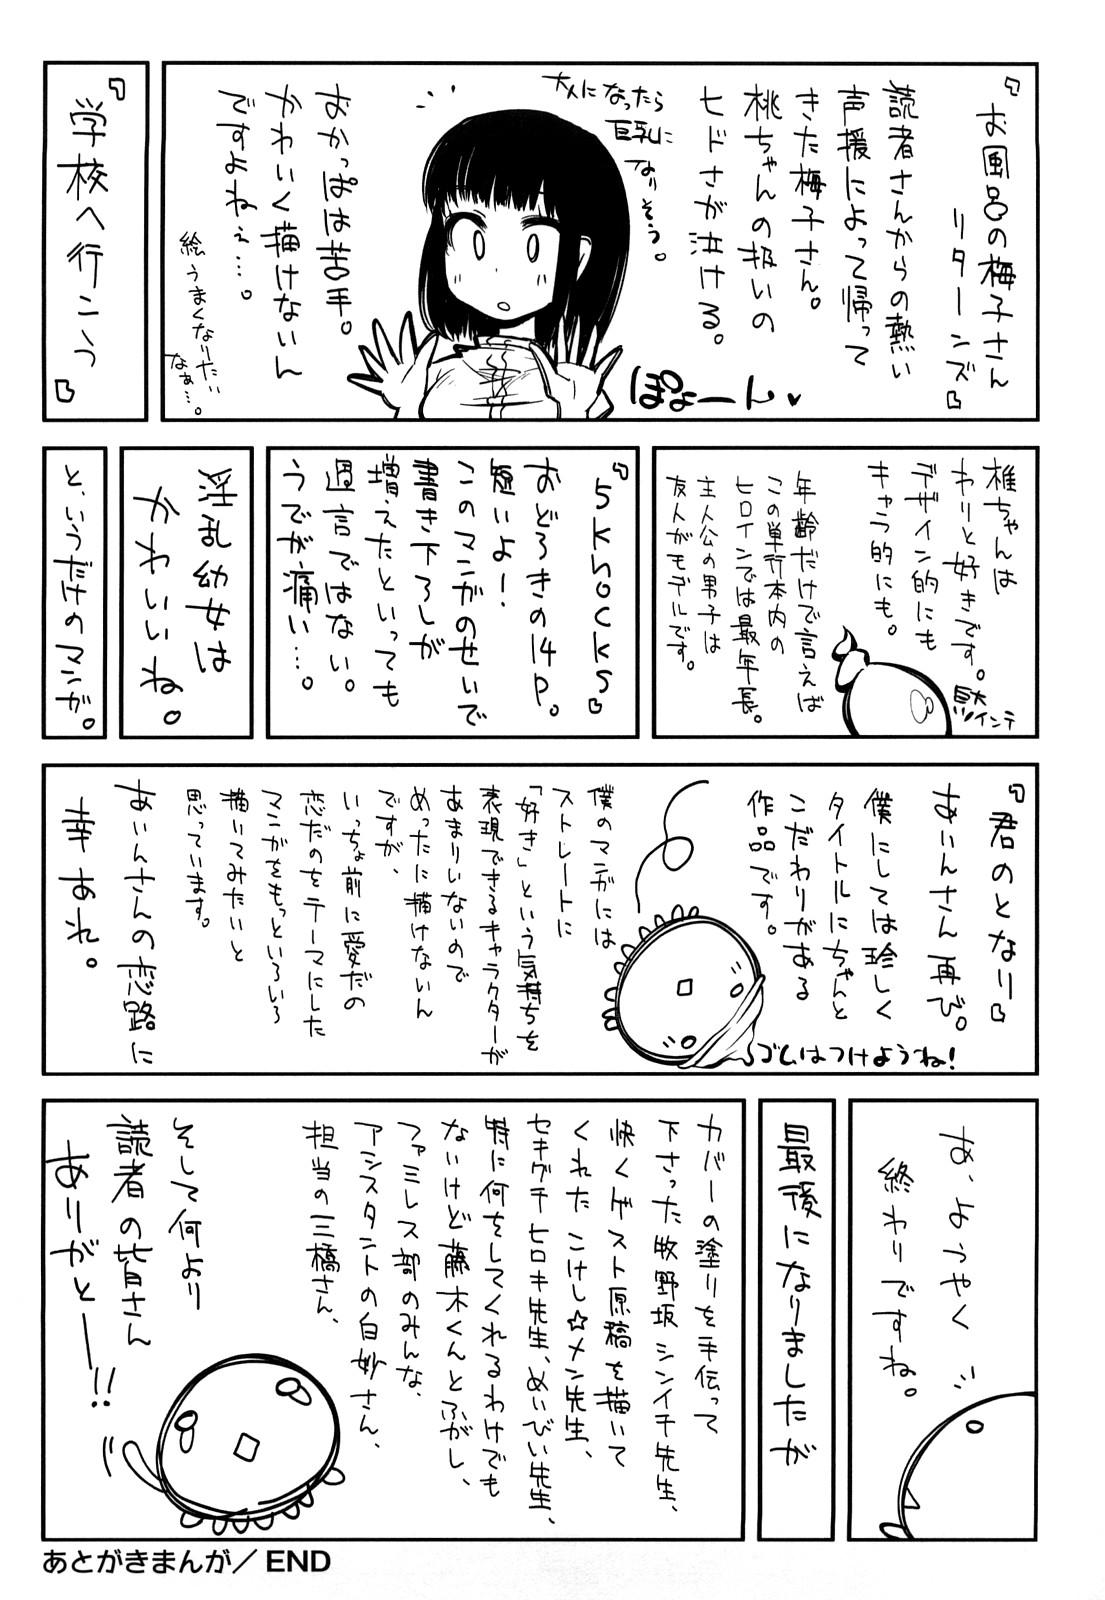 『お風呂の梅子さん
リターンズ』
読者さんからの熱い
声援によって帰って
きた梅子さん。
桃ちゃんの扱いの
ヒドさが泣ける。
ぽよーん♥
おかっぱは苦手。
かわいく描けないん
ですよねぇ…。
絵うまくなりたい
なぁ…。
『学校へ行こう』
椎ちゃんは
わりと好きです。
デザイン的にも
キャラ的にも。
年齢だけで言えば
この単行本内の
ヒロインでは最年長。
主人公の男子は
友人がモデルです。
『5knocks』
おどろきの14p。
短いよ!
このマンガのせいで
書き下ろしが
増えたといっても
過言ではない。
うでが痛い…。
と、いうだけのマンガ。
『君のとなり』
あいんさん再び。
僕にしては珍しく
タイトルにちゃんと
こだわりがある
作品です。
ゴムはつけようね!
僕のマンガには
ストレートに
「好き」という気持ちを
表現できるキャラクターが
あまりいないので
めったに描けないん
ですが、
いっちょ前に愛だの
恋だのをテーマにした
マンガをもっといろいろ
描いてみたいと
思っています。
あいんさんの恋路に
幸あれ。
あ、ようやく
終わりですね。
最後になりましたが
カバーの塗りを手伝って
下さった牧野坂シンイチ先生、
快くゲスト原稿を描いて
くれたこけし☆メン先生、
セキグチヒロキ先生、めいびい先生、
特に何をしてくれるわけでも
ないけど藤木くんとふがし、
ファミレス部のみんな、
アシスタントの白妙さん、
担当の三橋さん、
そして何より
読者の皆さん
ありがとー!!
あとがきまんが／END